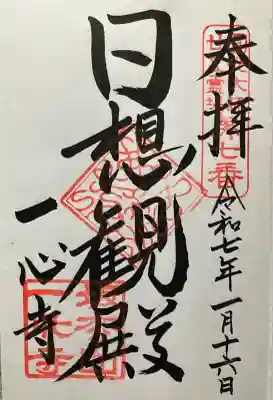 奉拝
令和七年一月十六日
日想観殿
一心寺